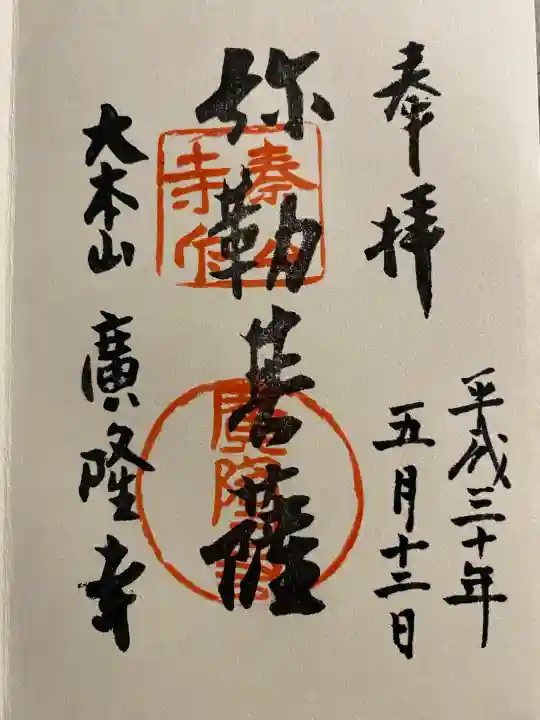 奉拝
平成三十年
五月十二日
弥勒菩薩
大本山 廣隆寺